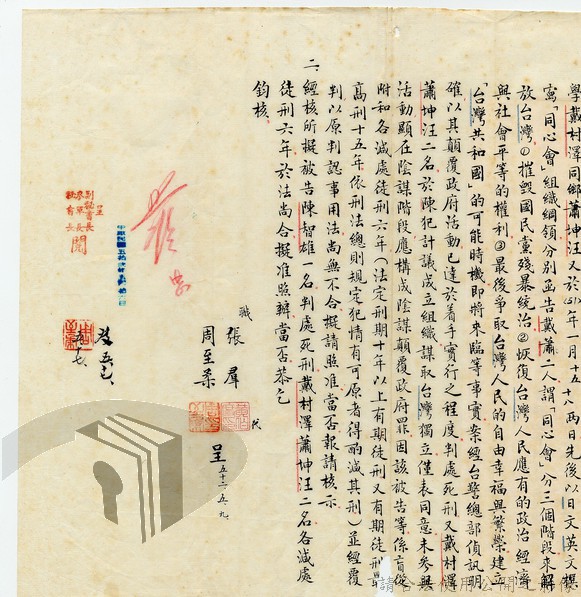 學戴村澤同鄉蕭坤汪又於50年一月十五十八兩日先後以日文撰
寫「同心會」組織綱領分別函告戴蕭二人謂「同心會」分三個階段來解
放台灣①摧毀國民黨殘暴統治②恢復台灣人民應有的政治經濟
與社會平等的權利③最後爭取台灣人民的自由幸福與繁榮建立
「台灣共和國」的可能時機即將來臨等事實案經台警總部偵訊明
確以其顛覆政府活動已達於着手實行之程度判處死刑又戴村澤
蕭坤汪二名於陳犯計議成立組織謀取台灣獨立僅表同意未參與
活動顯在陰謀階段應構成陰謀顛覆政府罪因該被告等係盲從
附和各減處徒刑六年(法定刑期十年以上有期徒刑又有期徒刑最
高刑十五年依刑法總則規定犯情有可原者得酌減其刑)並經覆
判以原判認事用法尚無不合擬請照准當否報請核示
二、經核所擬被告陳智雄一名判處死刑戴村澤蕭坤汪二名各減處
徒刑六年於法尚合擬准照辦當否恭乞
鈞核
職 張羣
周至柔
呈 五十二、五、九
副秘書長
參軍長
秘書長
呈
閱